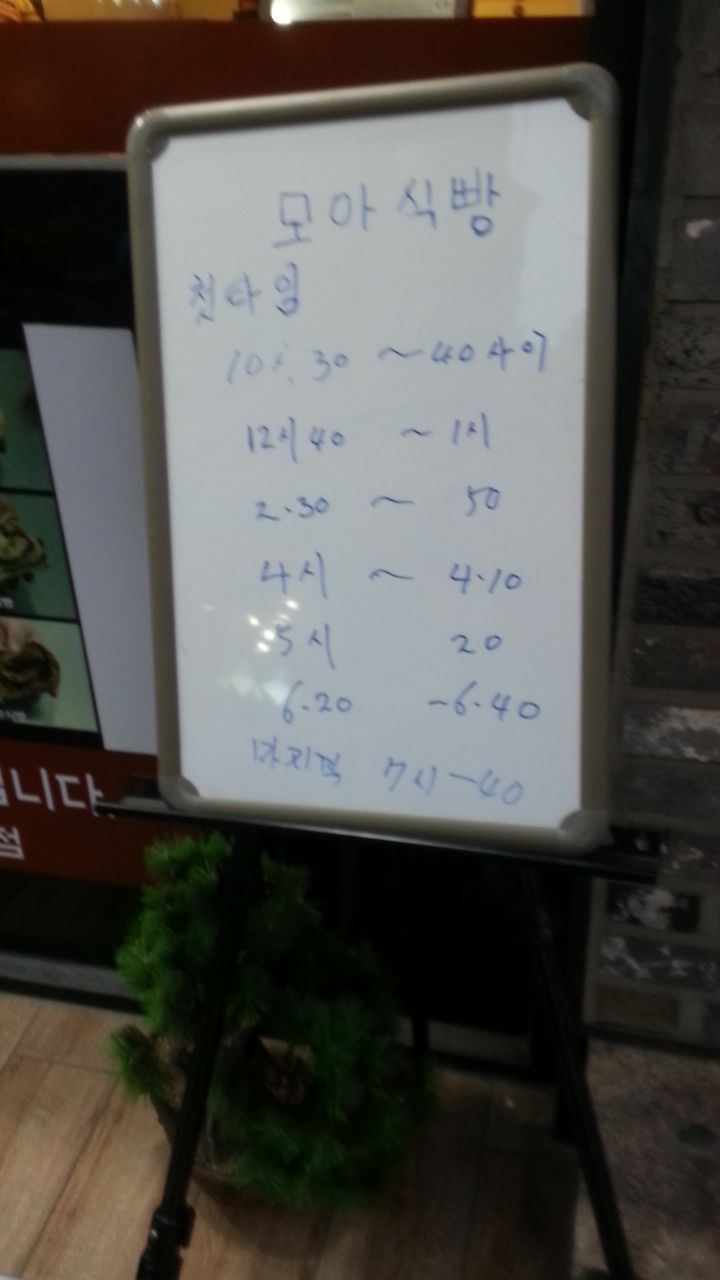 모아식빵
첫타임
10시.30 ~ 40 사이
12시 40 ~ 1시
2.30 ~ 50
4시 ~ 4.10
5시 20
6.20 -6.40
마지막 7시-40
니다.
점